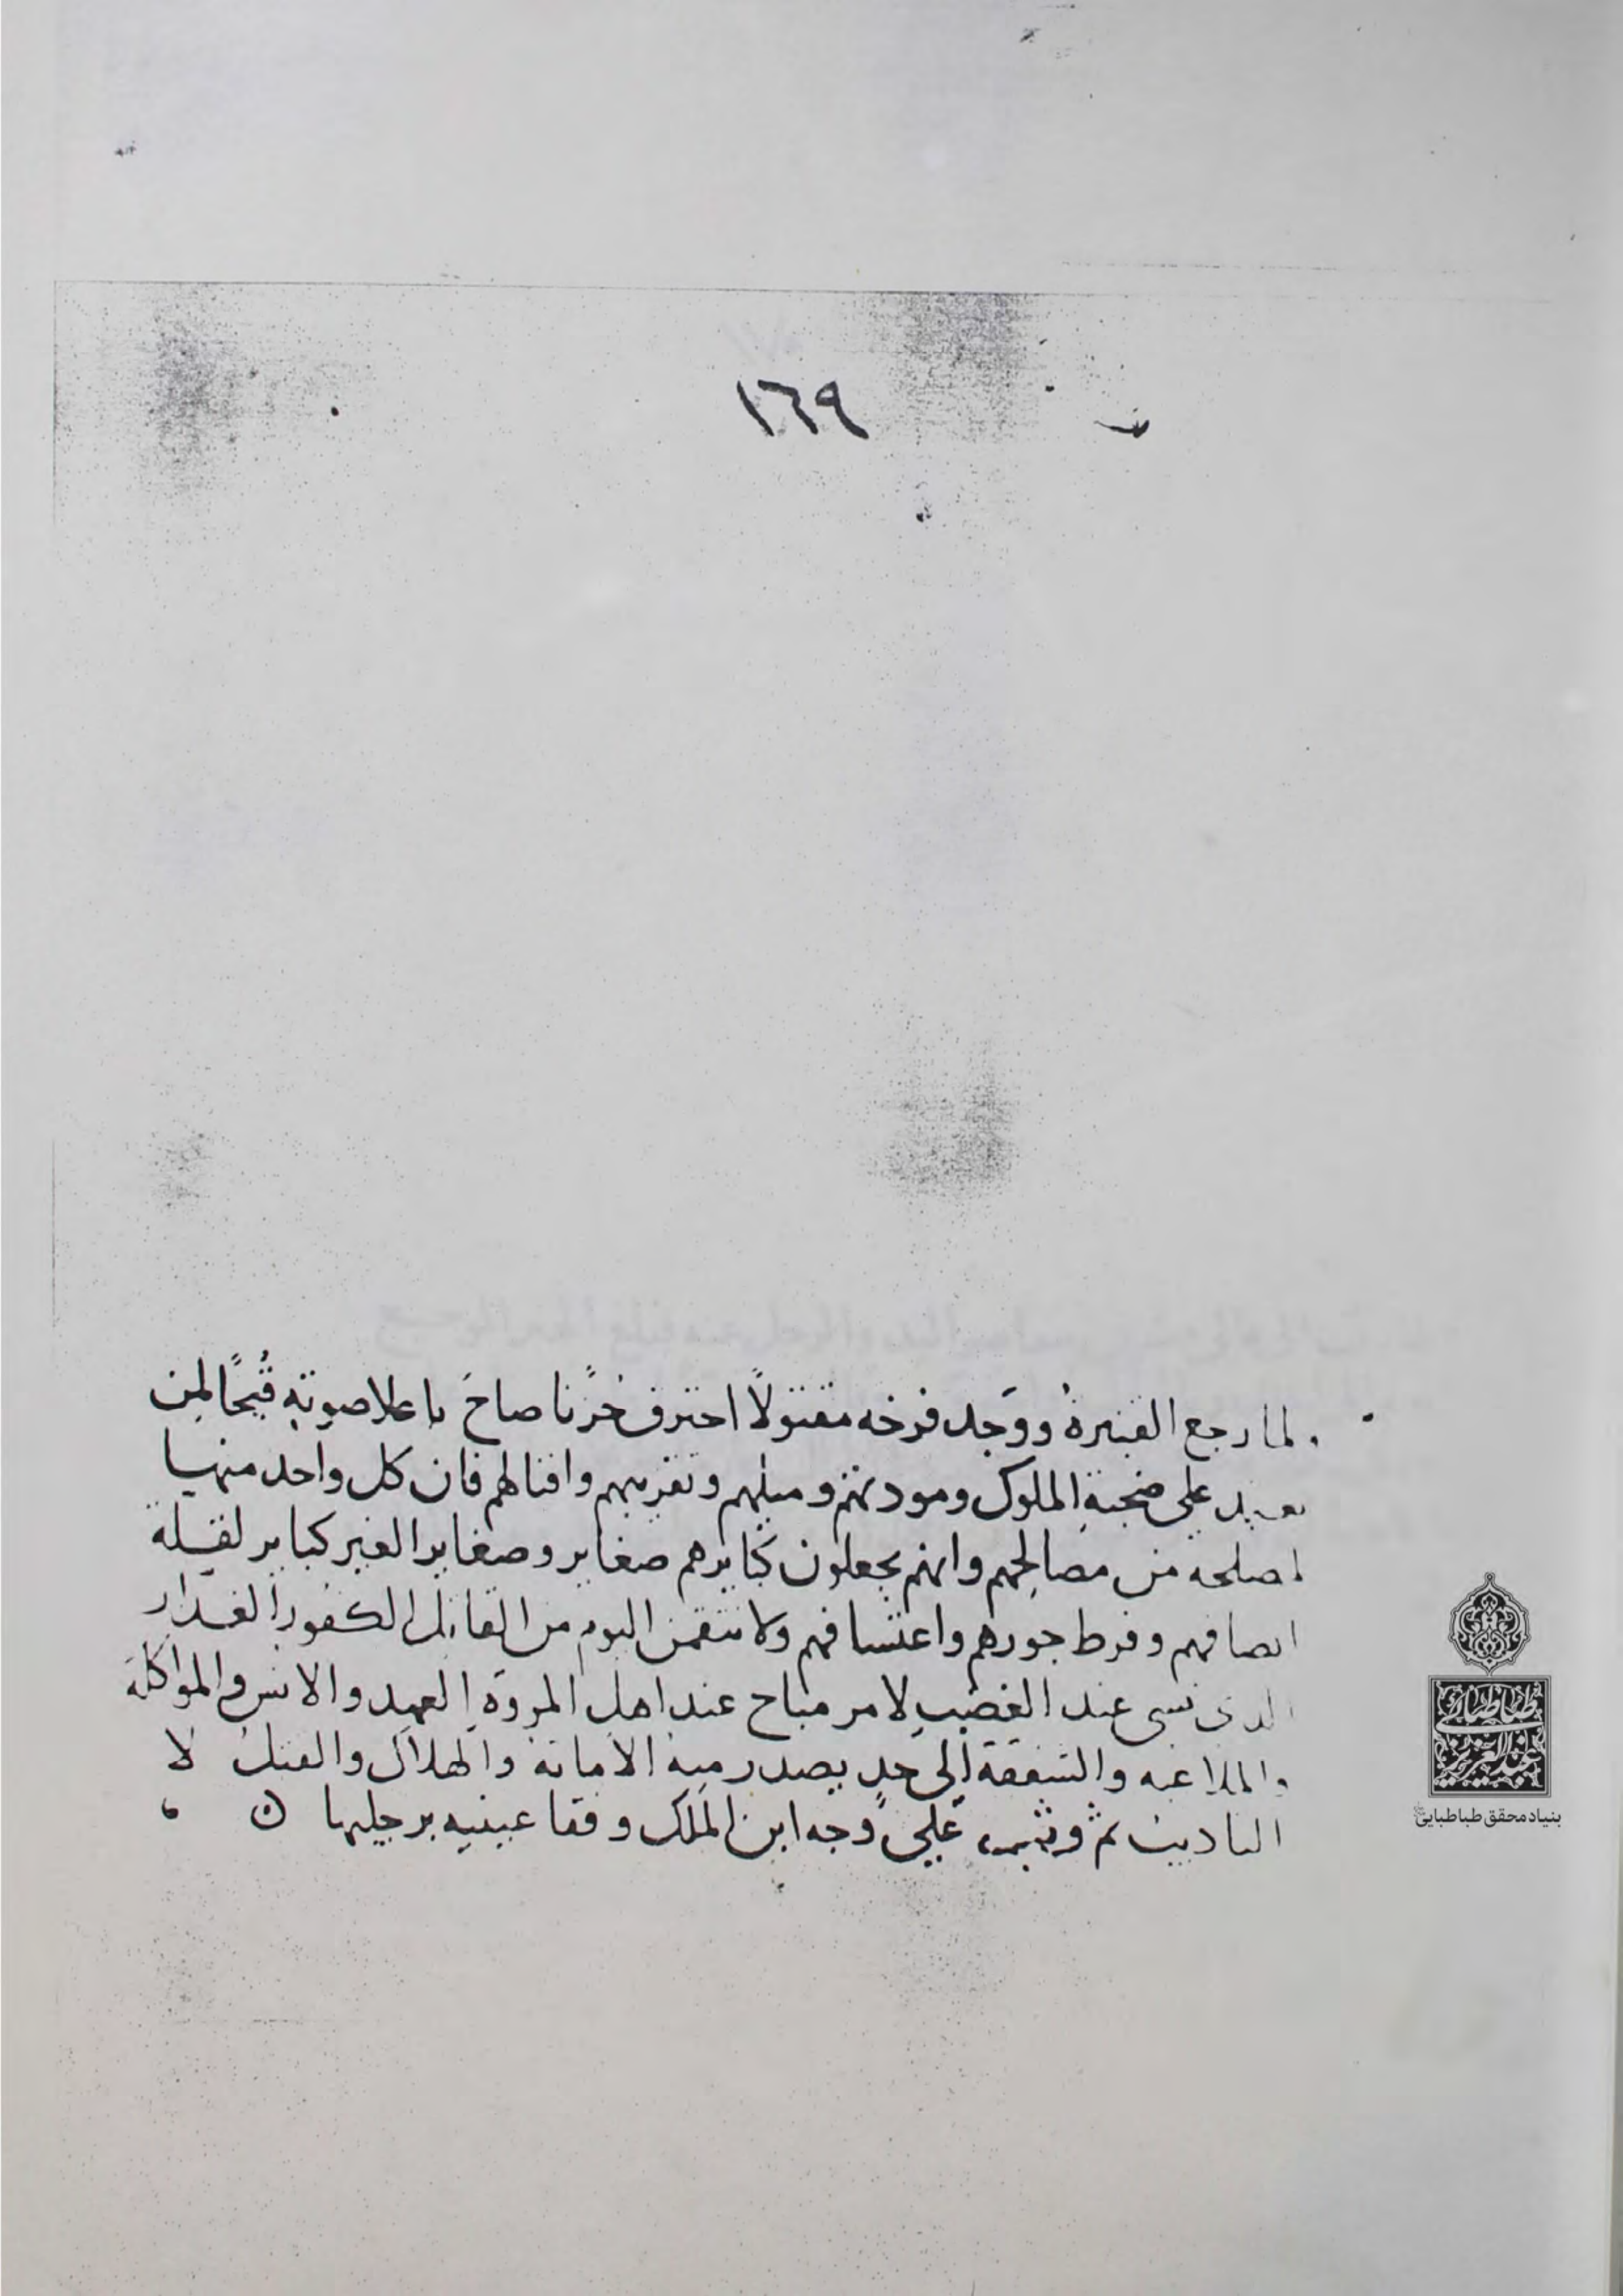 ١٦٩
لما رجع القنبرة ووجد فرخه مقتولًا احترق حزنا صاح باعلا صوته قُبحًا لمن
على صحبة الملوك ومودتهم وميلهم وتقريبهم واقبالهم فان كل واحد منها
لمصلحه من مصالحهم وانهم يجعلون كبايرهم صغاير وصغاير الغير كباير لقلة
انصافهم وفرط جورهم واعتسافهم ولا نتقمن اليوم من القاتل الكفور الغدار
الذى نسى عند الغضب لامر مباح عند اهل المروة العهد والانس والمواكلة
والملاعبه والشفقة الى حد يصدر منه الامانة والهلاك والقتل لا
التاديب ثم وثب على وجه ابن الملك وفقا عينيه برجليها
بنیاد محقق طباطبایی